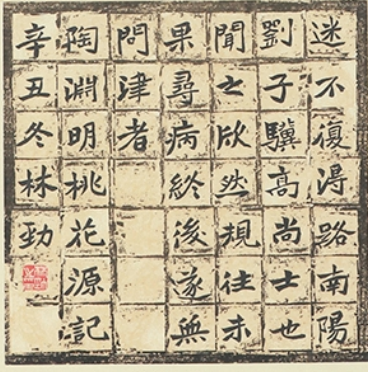 迷不復淂路南陽
劉子驥高尚士也
聞之欣然規往未
果尋病終後遂無
問津者
陶淵明桃花源記
辛丑冬林勁